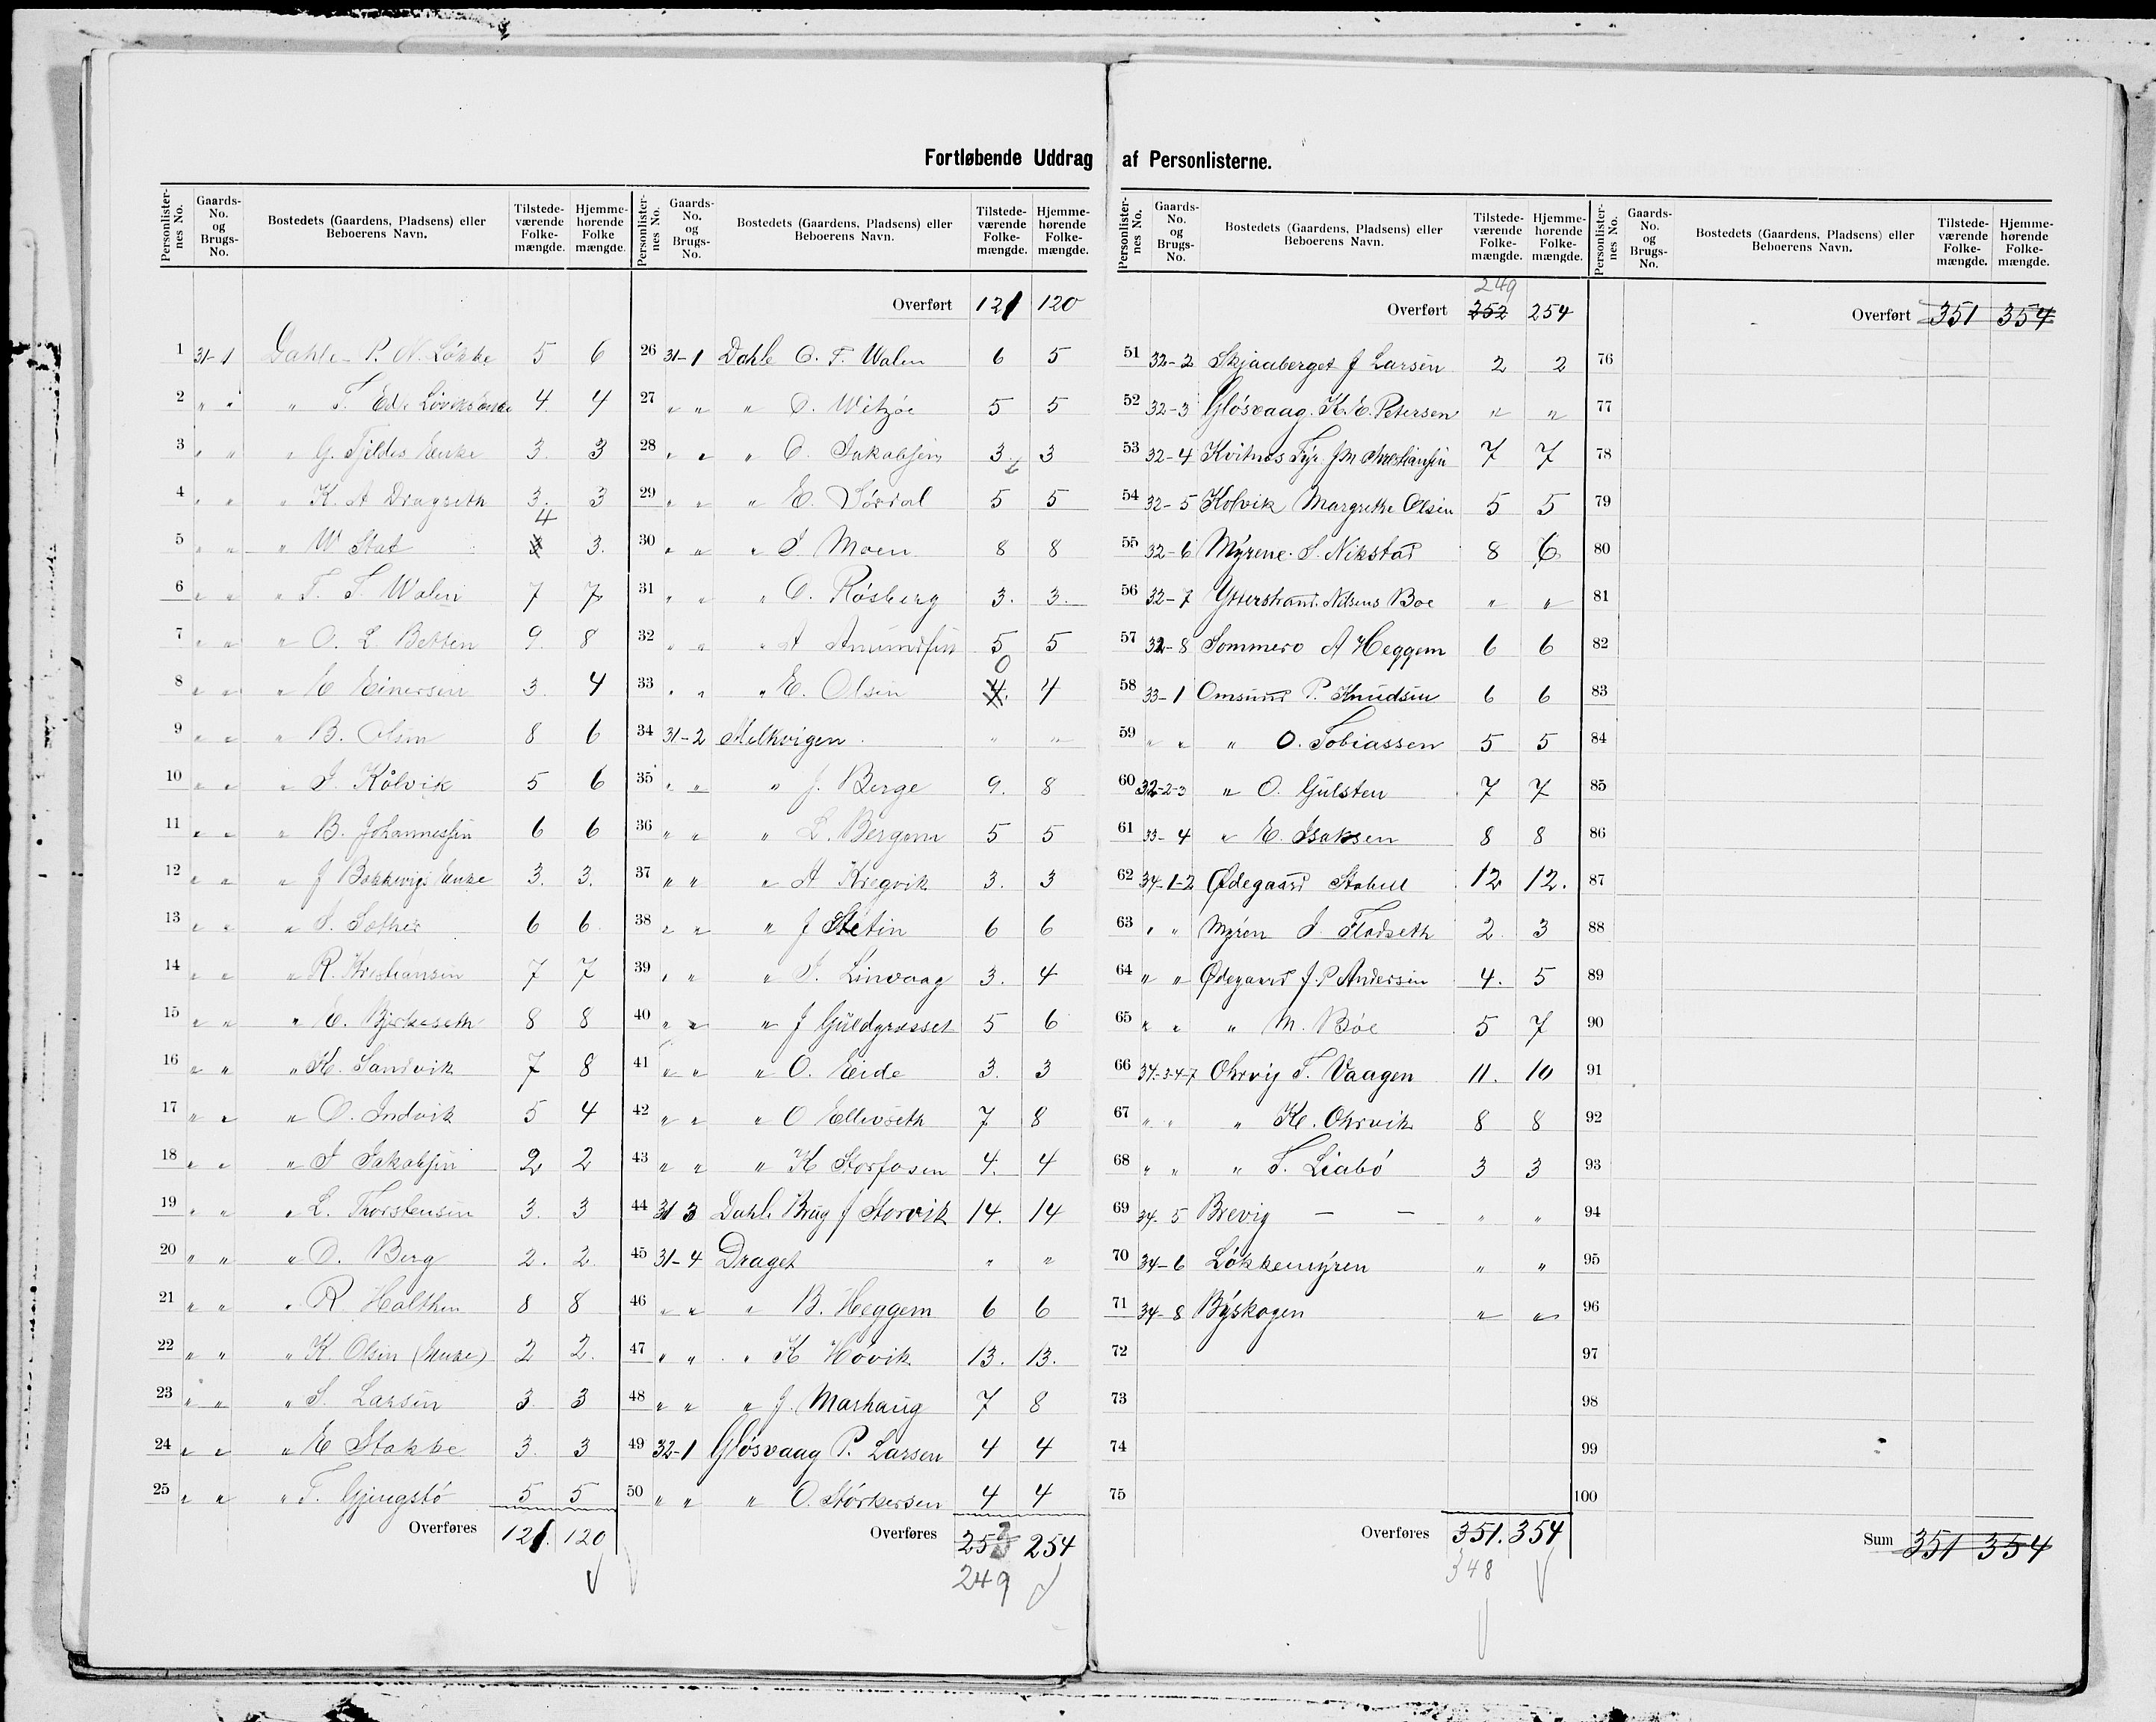 Fortløbende Uddrag af Personlisterne.
Personlister-nes No. | Gaards-No. og Brugs-No. | Bostedets (Gaardens, Pladsens) eller Beboerens Navn. | Tilstede-værende Folke-mængde. | Hjemme-hørende Folke mængde.
1 31-1 Dahle P. N. Løkke 5 6
2 " " " T. Eds Enke 4 4
3 " " " G. Fjeldes Enke 3. 3
4 " " " K. A Dragseth 3. 3
5 " " " W Stat 4 3 3.
6 " " " T. S. Walen 7 7
7 " " " O. L. Betten 9. 8
8 " " " E Einersen 3. 4
9 " " " B. Olsen 8 6
10 " " " I. Kålvik 5 6
11 " " " B. Johannessen 6 6
12 " " " J Bakkevigs Enke 3. 3.
13 " " " S. Sæther 6 6
14 " " " R. Kristiansen 7 7
15 " " " E. Birkeseth 8 8
16 " " " K. Sandvik 7 8
17 " " " O. Indvik 5 4
18 " " " I Jakobsen 2 2
19 " " " L. Thorstensen 3. 3
20 " " " O. Berg 2. 2
21 " " " R Holthen 8 8
22 " " " K. Olsen (Enke) 2 2.
23 " " " S. Larsen 3. 3
24 " " " E Stokke 3. 3
25 " " " T. Gjengstø 5 5
Overføres 121. 120
Personlister-nes No. | Gaards-No. og Brugs-No. | Bostedets (Gaardens, Pladsens) eller Beboerens Navn. | Tilstede-værende Folke-mængde. | Hjemme-hørende Folke-mængde.
Overført 121 120
26 31-1 Dahle O. T. Walen 6 5
27 " " " O. Witzøe 5 5
28 " " " O. Jakobsen 3. 3
29 " " " E. Sørdal 5 5
30 " " " I Moen 8 8
31 " " " O. Røsberg 3. 3.
32 " " " A Amundsen 5 5
33 " " " E. Olsen 0 4. 4
34 31-2 Melkvigen " "
35 " " " J. Berge 9. 8
36 " " " L. Bergem 5 5
37 " " " A Kregvik 3. 3
38 " " " J Stetin 6 6
39 " " " I. Linvaag 3. 4
40 " " " J Guldgræsset 5 6
41 " " " O. Eide 3. 3
42 " " " O Ellevseth 7 8
43 " " " K Storfosen 4. 4
44 31 3 Dahle Brug J Storvik 14. 14
45 31-4 Draget " "
46 " " " B. Heggem 6 6
47 " " " K Høvik 13. 13.
48 " " " J. Marhaug 7 8
49 32-1 Gløsvaag P. Larsen 4 4
50 " " " O. Størkersen 4 4
Overføres 253 254
249
Personlister-nes No. | Gaards-No. og Brugs-No. | Bostedets (Gaardens, Pladsens) eller Beboerens Navn. | Tilstede-værende Folke-mængde. | Hjemme-hørende Folke-mængde.
249
Overført 252 254
51 32-2 Skjaaberget J Larsen 2 2
52 32-3 Gløsvaag. K. E. Petersen " "
53 32-4 Kvitnes Fyr. J M Kristiansen 7 7
54 32-5 Kolvik Margrethe Olsen 5 5
55 32-6 Myrene. S. Nikstad 8 6
56 32-7 Ytterstrand. Nilsens Boe " "
57 32-8 Sommero A Heggem 6 6
58 33-1 Omsund P. Knudsen 6 6
59 " " " O. Tobiassen 5 5
60 32-2-3 " O. Gulsten 7 7
61 33-4 " E. Isaksen 8 8
62 34-1-2 Ødegaard Stabell 12 12.
63 " " Myren I. Flodseth 2. 3
64 " " Ødegaard J. P Andersen 4. 5
65 " " " M. Bøe 5 7
66 34-3-4-7 Ohrvig T. Vaagen 11. 10
67 " " " K. Ohrvik 8 8
68 " " " T. Liabø 3 3
69 34-5 Brevig – – " "
70 34-6 Løkkemyren " "
71 34-8 Byskogen " "
72
73
74
75
Overføres 351. 354
348
Personlister-nes No. | Gaards-No. og Brugs-No. | Bostedets (Gaardens, Pladsens) eller Beboerens Navn. | Tilstede-værende Folke-mængde. | Hjemme-hørende Folke-mængde.
Overført 351 354
76
77
78
79
80
81
82
83
84
85
86
87
88
89
90
91
92
93
94
95
96
97
98
99
100
Sum 351 354